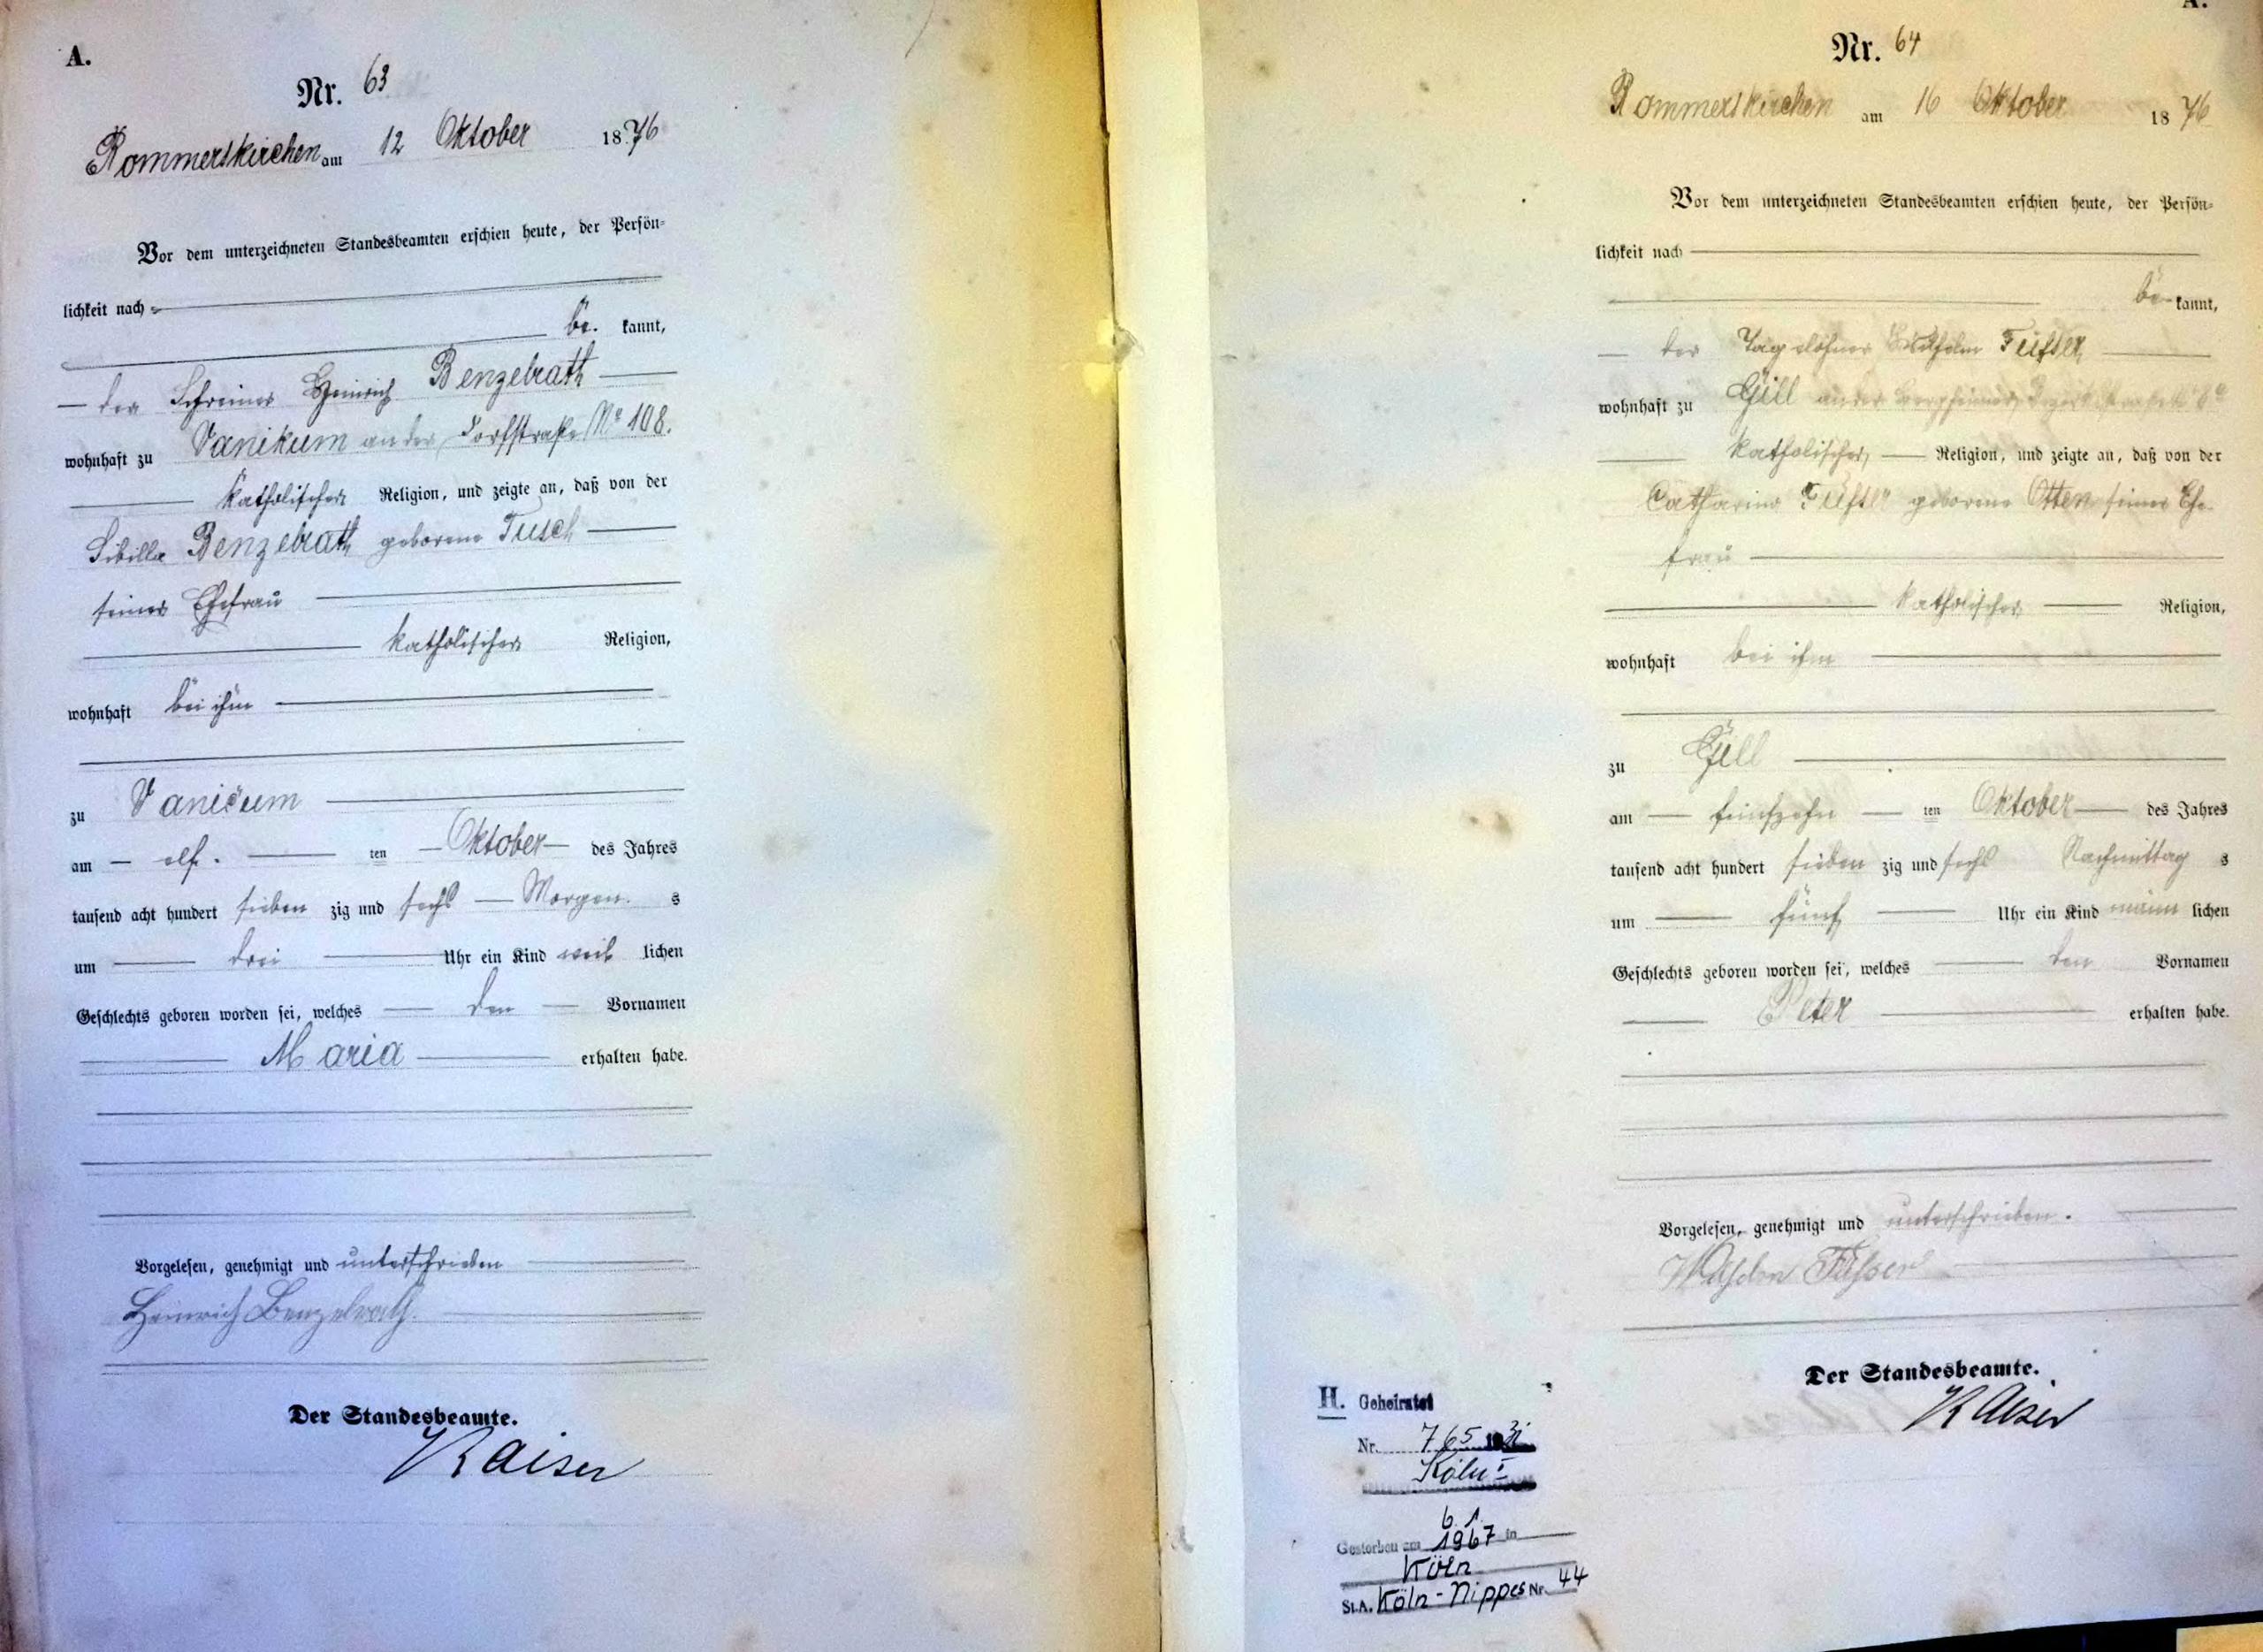 A.
Nr. 63
Rommerskirchen am 12 Oktober 1876
Vor dem unterzeichneten Standesbeamten erschien heute, der Persön-
lichkeit nach
be. kannt,
der Schreiner Heinrich Benzelrath
wohnhaft zu Vanikum an der Dorfstraße No 108.
katholischer Religion, und zeigte an, daß von der
Sibilla Benzelrath geborene Tusch
seiner Ehefrau
katholischer Religion,
wohnhaft bei ihm
zu Vanicum
am elf. ten Oktober des Jahres
tausend acht hundert sieben zig und sechs Morgen s
um drei Uhr ein Kind weib lichen
Geschlechts geboren worden sei, welches den Vornamen
Maria erhalten habe.
Vorgelesen, genehmigt und unterschrieben
Heinrich Benzelrath.
Der Standesbeamte.
Kaiser
A.
Nr. 64
Rommerskirchen am 16 Oktober 1876
Vor dem unterzeichneten Standesbeamten erschien heute, der Persön-
lichkeit nach
be kannt,
der Tagelöhner Wilhelm
wohnhaft zu Gill an der
katholischer Religion, und zeigte an, daß von der
Catharina geborene Otten seiner Ehe-
frau
katholischer Religion,
wohnhaft bei ihm
zu Gill
am fünfzehn ten Oktober des Jahres
tausend acht hundert sieben zig und sechs Nachmittag s
um fünf Uhr ein Kind männ lichen
Geschlechts geboren worden sei, welches den Vornamen
Peter erhalten habe.
Vorgelesen, genehmigt und unterschrieben.
Der Standesbeamte.
Kaiser
H. Geheiratet
Nr. 765
Köln I
Gestorben am 6.1.1967 in
Köln
St.A. Köln-Nippes Nr. 44